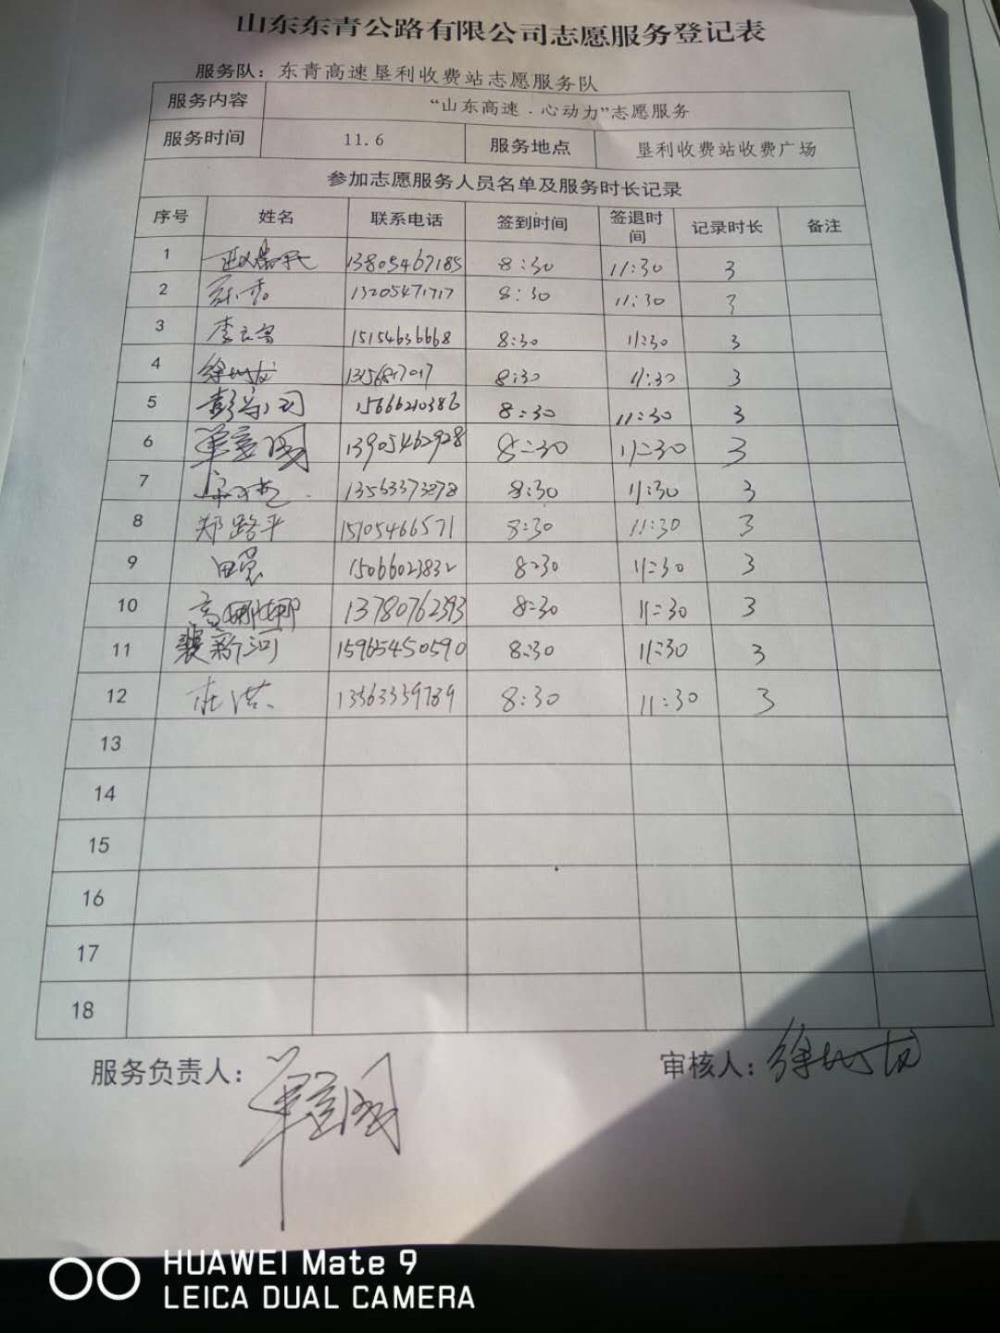 山东东青公路有限公司志愿服务登记表
服务队：东青高速垦利收费站志愿服务队
服务内容 “山东高速．心动力”志愿服务
服务时间 11.6 服务地点 垦利收费站收费广场
参加志愿服务人员名单及服务时长记录
序号 姓名 联系电话 签到时间 签退时间 记录时长 备注
1 13805467185 8:30 11:30 3
2 13205471717 8:30 11:30 3
3 李 15154636668 8:30 11:30 3
4 徐 8:30 11:30 3
5 彭 15666210386 8:30 11:30 3
6 单 13905462928 8:30 11:30 3
7 13563373278 8:30 11:30 3
8 郑路平 15105466571 8:30 11:30 3
9 田 15066023832 8:30 11:30 3
10 高娜娜 13780762393 8:30 11:30 3
11 裴新河 15965450590 8:30 11:30 3
12 杜洪 13563339789 8:30 11:30 3
13
14
15
16
17
18
服务负责人： 单
审核人： 徐
HUAWEI Mate 9
LEICA DUAL CAMERA